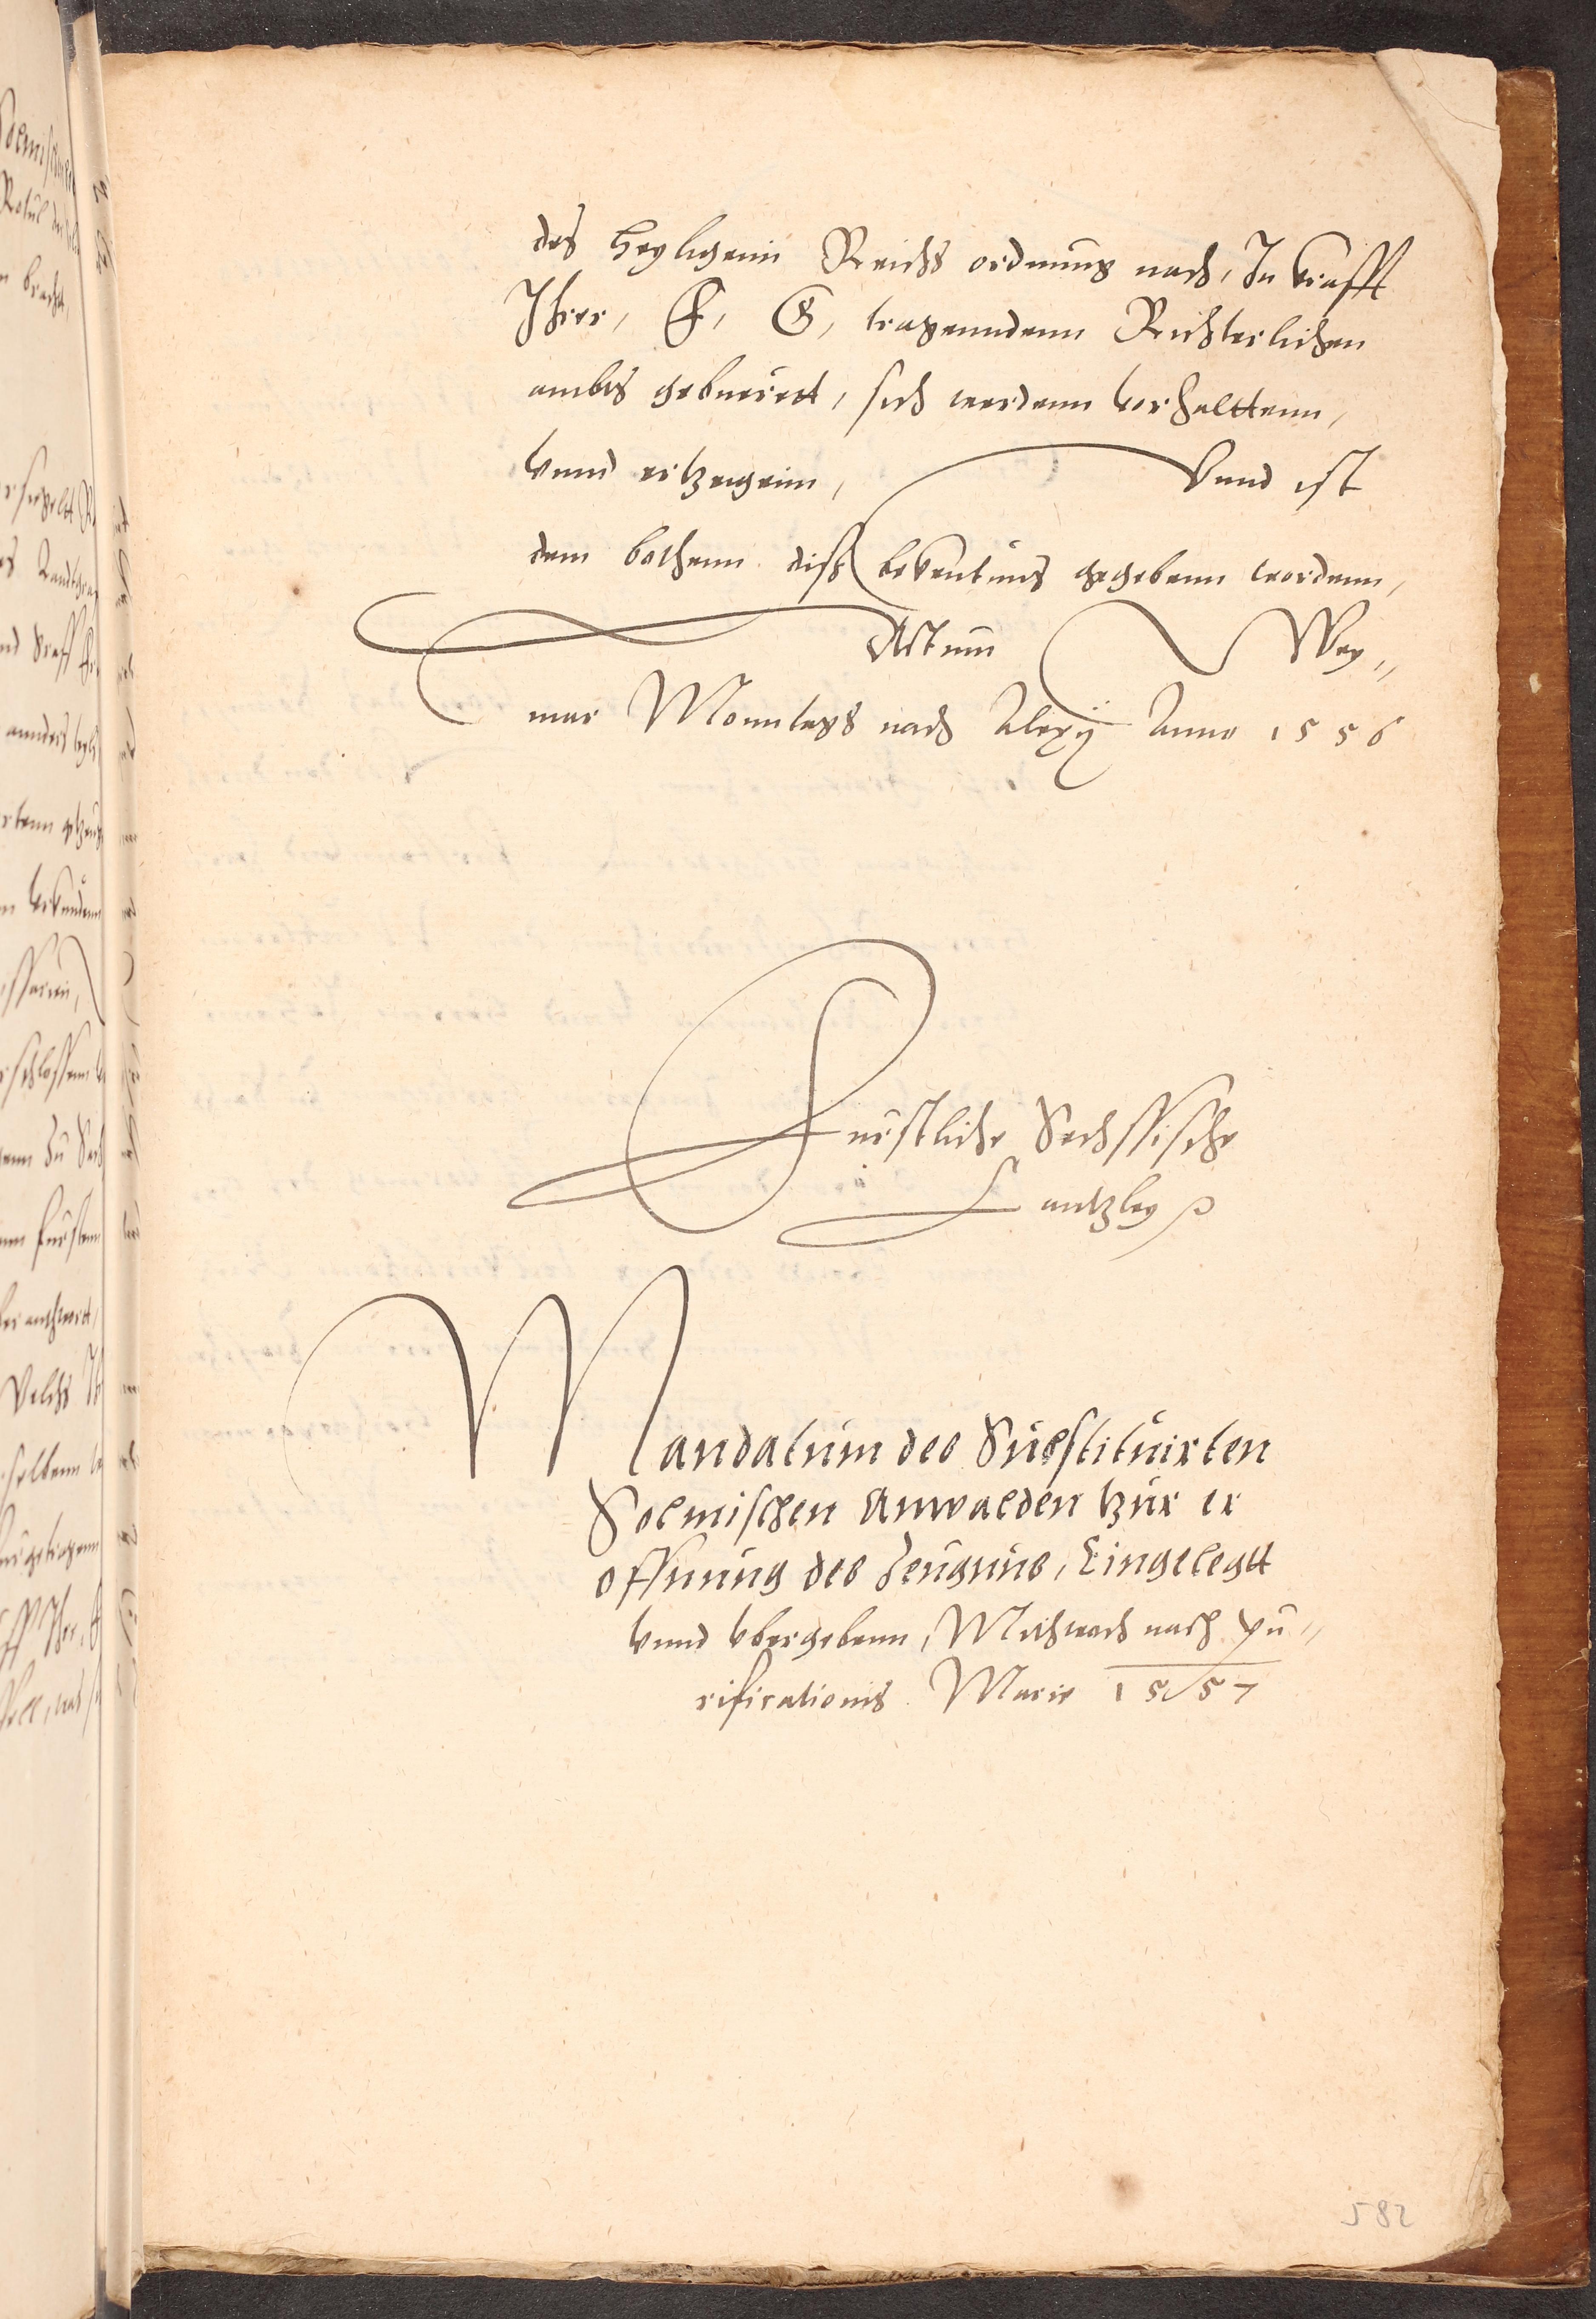 des heyligenn Reichs ordnung nach, In krafft
Ihrer, F, G, tragenndenn Richterlichen
ambts gebuerett, sich werdenn vorhalttenn,
vnnd ertzeigenn, Vnnd ist
dem bothenn diß bekentnus gegebenn wordenn,
Actum Wey„
mar Monntags nach Alexÿ Anno 1556
Furstliche Sechssische
Cantzley
Mandatum des Substituirten
Solmischen Anwalden tzur er
offnung des Zeugnus, Eingelegtt
vnnd vbergebenn, Mithwoch nach pu„
rificationis Marie 1557
582